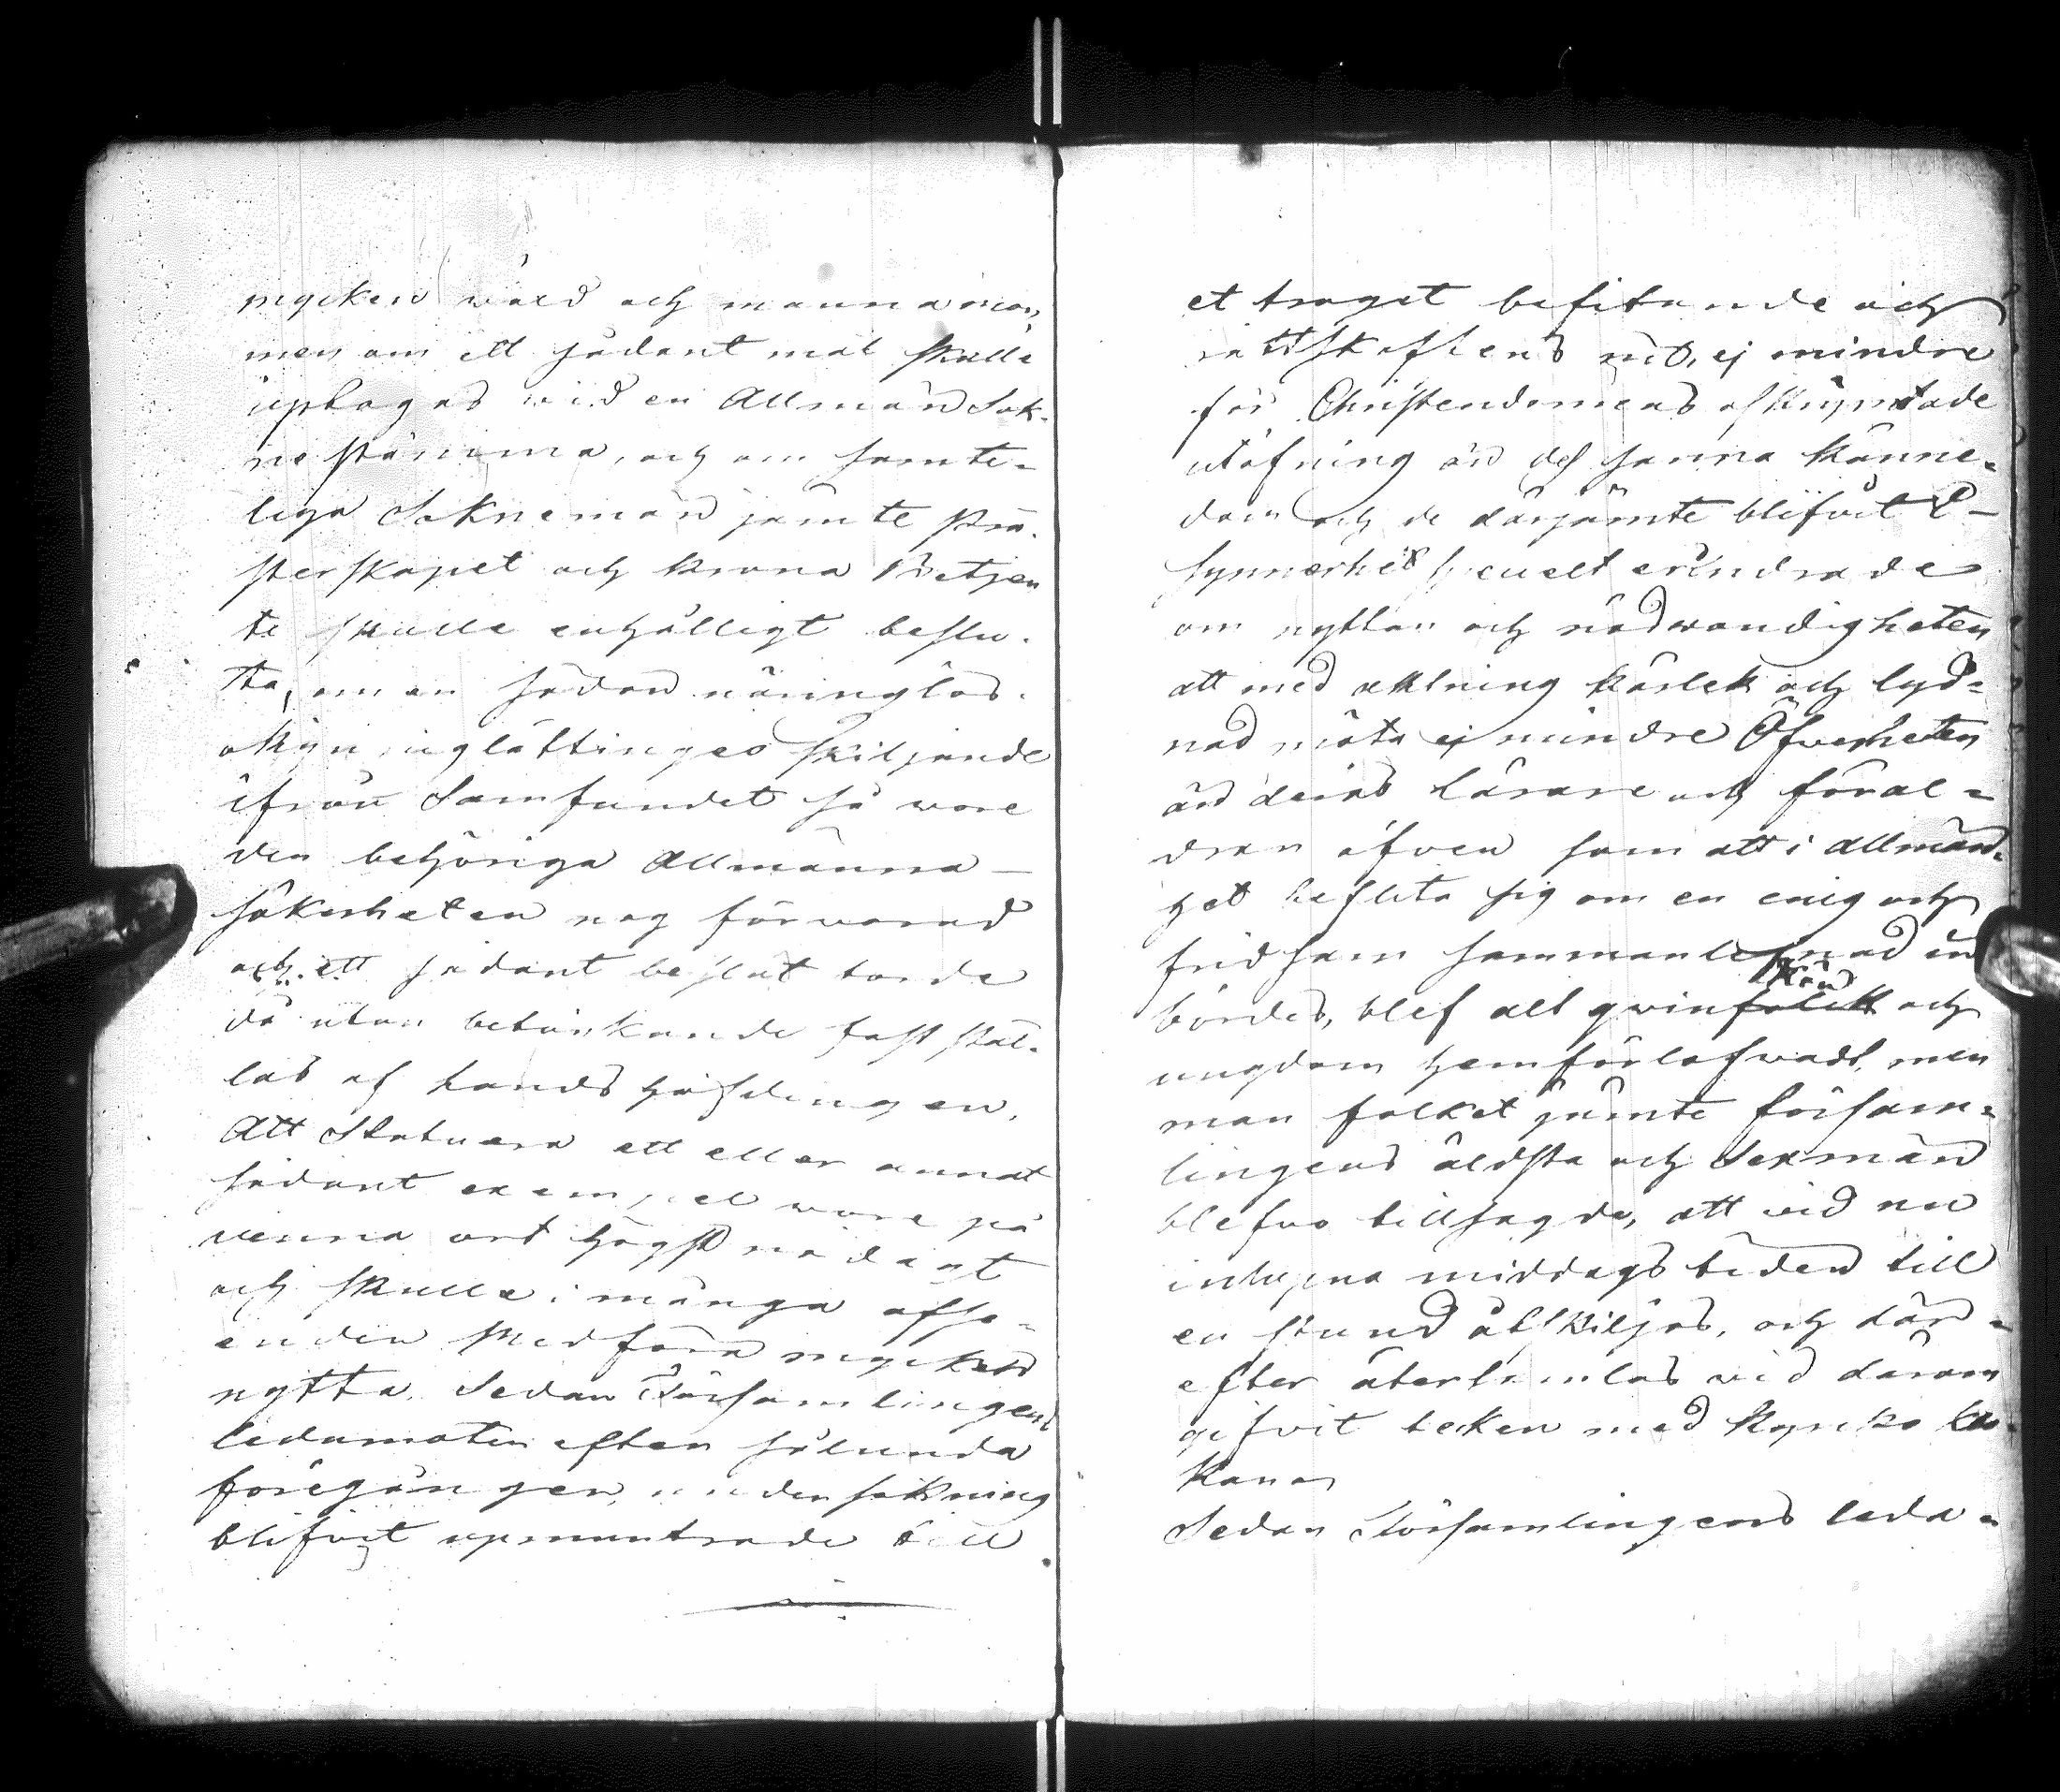 mycken wåld och mannamon,
men om ett sådant mål skulle
uptagas wid en Allmän Sok-
ne stämma, och om samte-
liga Soknemän jämte Prä-
sterskapet och krono Betjen
te skulle enhälligt beslu-
ta, om en sådan näringlös
okynnig lättinges skiljande
ifrån Samfundet så wore
den behöriga Allmänna
säkerheten nog förwarad
och ett sådant beslut torde
då utan betänkande fast stäl-
las af Landshöfdingen.
Att Statuera ett eller annat
sådant exempel wore på
denna ort högst nödigt
och skulle i många afse-
enden medföra mycken
nytta. Sedan Församlingens
ledamöter efter sålunda
föregången undersökning
blifvit upmuntrade till
et troget besittande och
rättskaffens nit, ej mindre
för Christendomens oskrymtade
utöfning än des sanna känne-
dom och de därjämte blifvit I
synnerhet speciellt erindrade
om nyttan och nödwändigheten
att med aktning kärlek och lyd-
nad möta ej mindre Öfwerheten
än deras lärare och föräl-
drar äfven som att i allmän-
het beflita sig om en enig och
fridsam sammanlefnad in
bördes, blef alt qwinfolket och
ungdom hemförlofwadt, men
man folket jämte församl-
lingens äldsta och Sexmän
blefvo tillsagde, att wid nu
inlupna middags tiden till
en stund åtskiljas, och där-
efter återsamlas wid därom
gifvit tecken med kyrko klo-
kan
Sedan Församlingens leda-